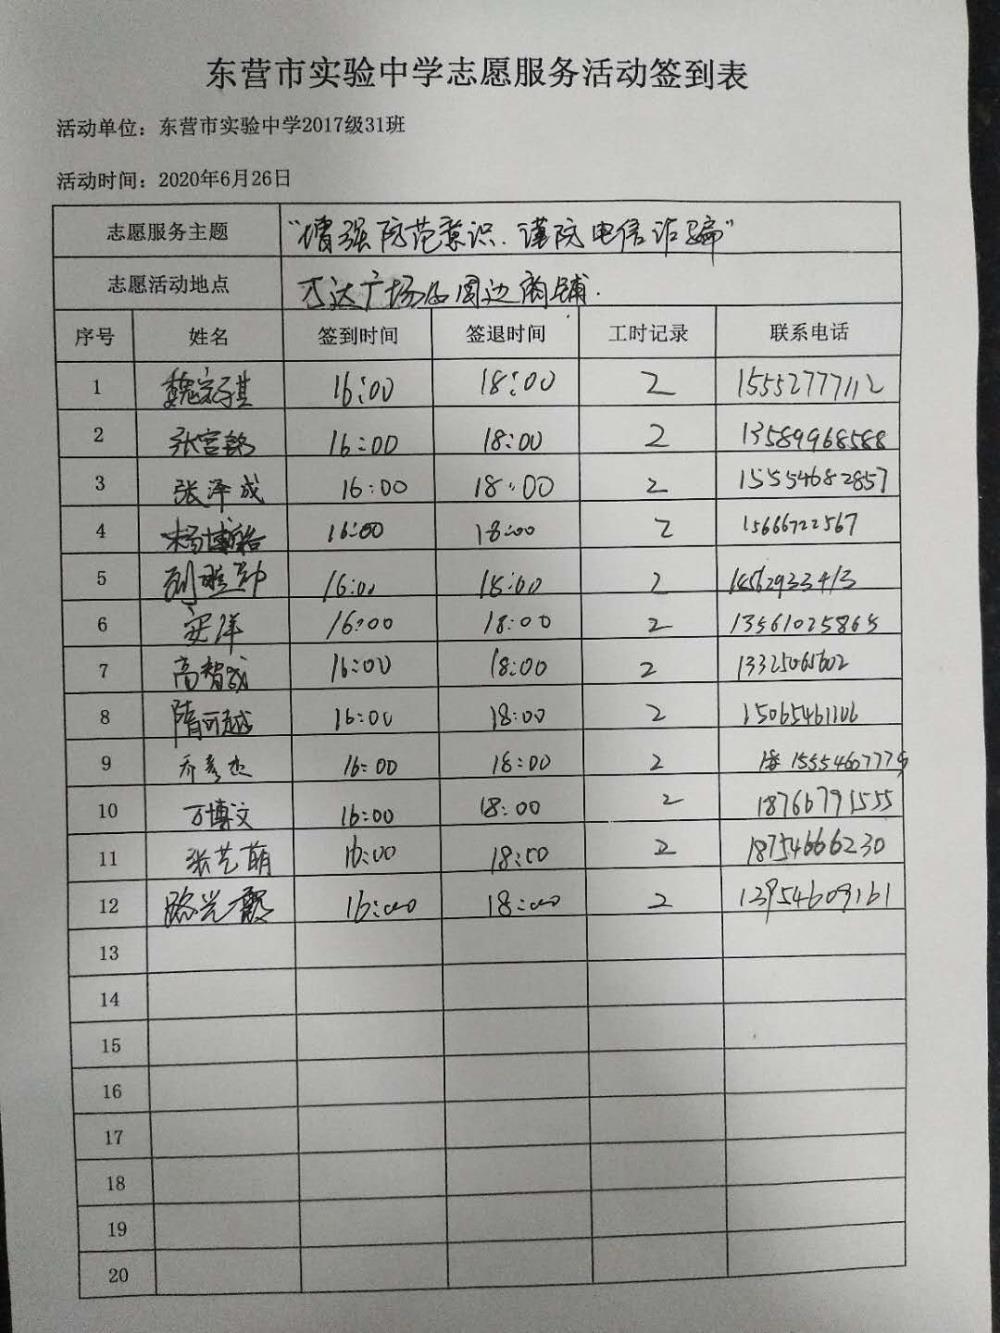 东营市实验中学志愿服务活动签到表
活动单位：东营市实验中学2017级31班
活动时间：2020年6月26日
志愿服务主题 “增强防范意识、谨防电信诈骗”
志愿活动地点 万达广场及周边商铺.
序号 姓名 签到时间 签退时间 工时记录 联系电话
1 16:00 18:00 2 15552777112
2 16:00 18:00 2 13589968588
3 张泽成 16:00 18:00 2 15554682857
4 16:00 18:00 2 15666722567
5 16:00 18:00 2
6 安洋 16:00 18:00 2 13561025865
7 高智成 16:00 18:00 2 13325065602
8 隋可越 16:00 18:00 2 15065461106
9 乔彦杰 16:00 18:00 2
10 万博文 16:00 18:00 2 18766791555
11 张艺萌 16:00 18:00 2 18754666230
12 16:00 18:00 2 13954609161
13
14
15
16
17
18
19
20